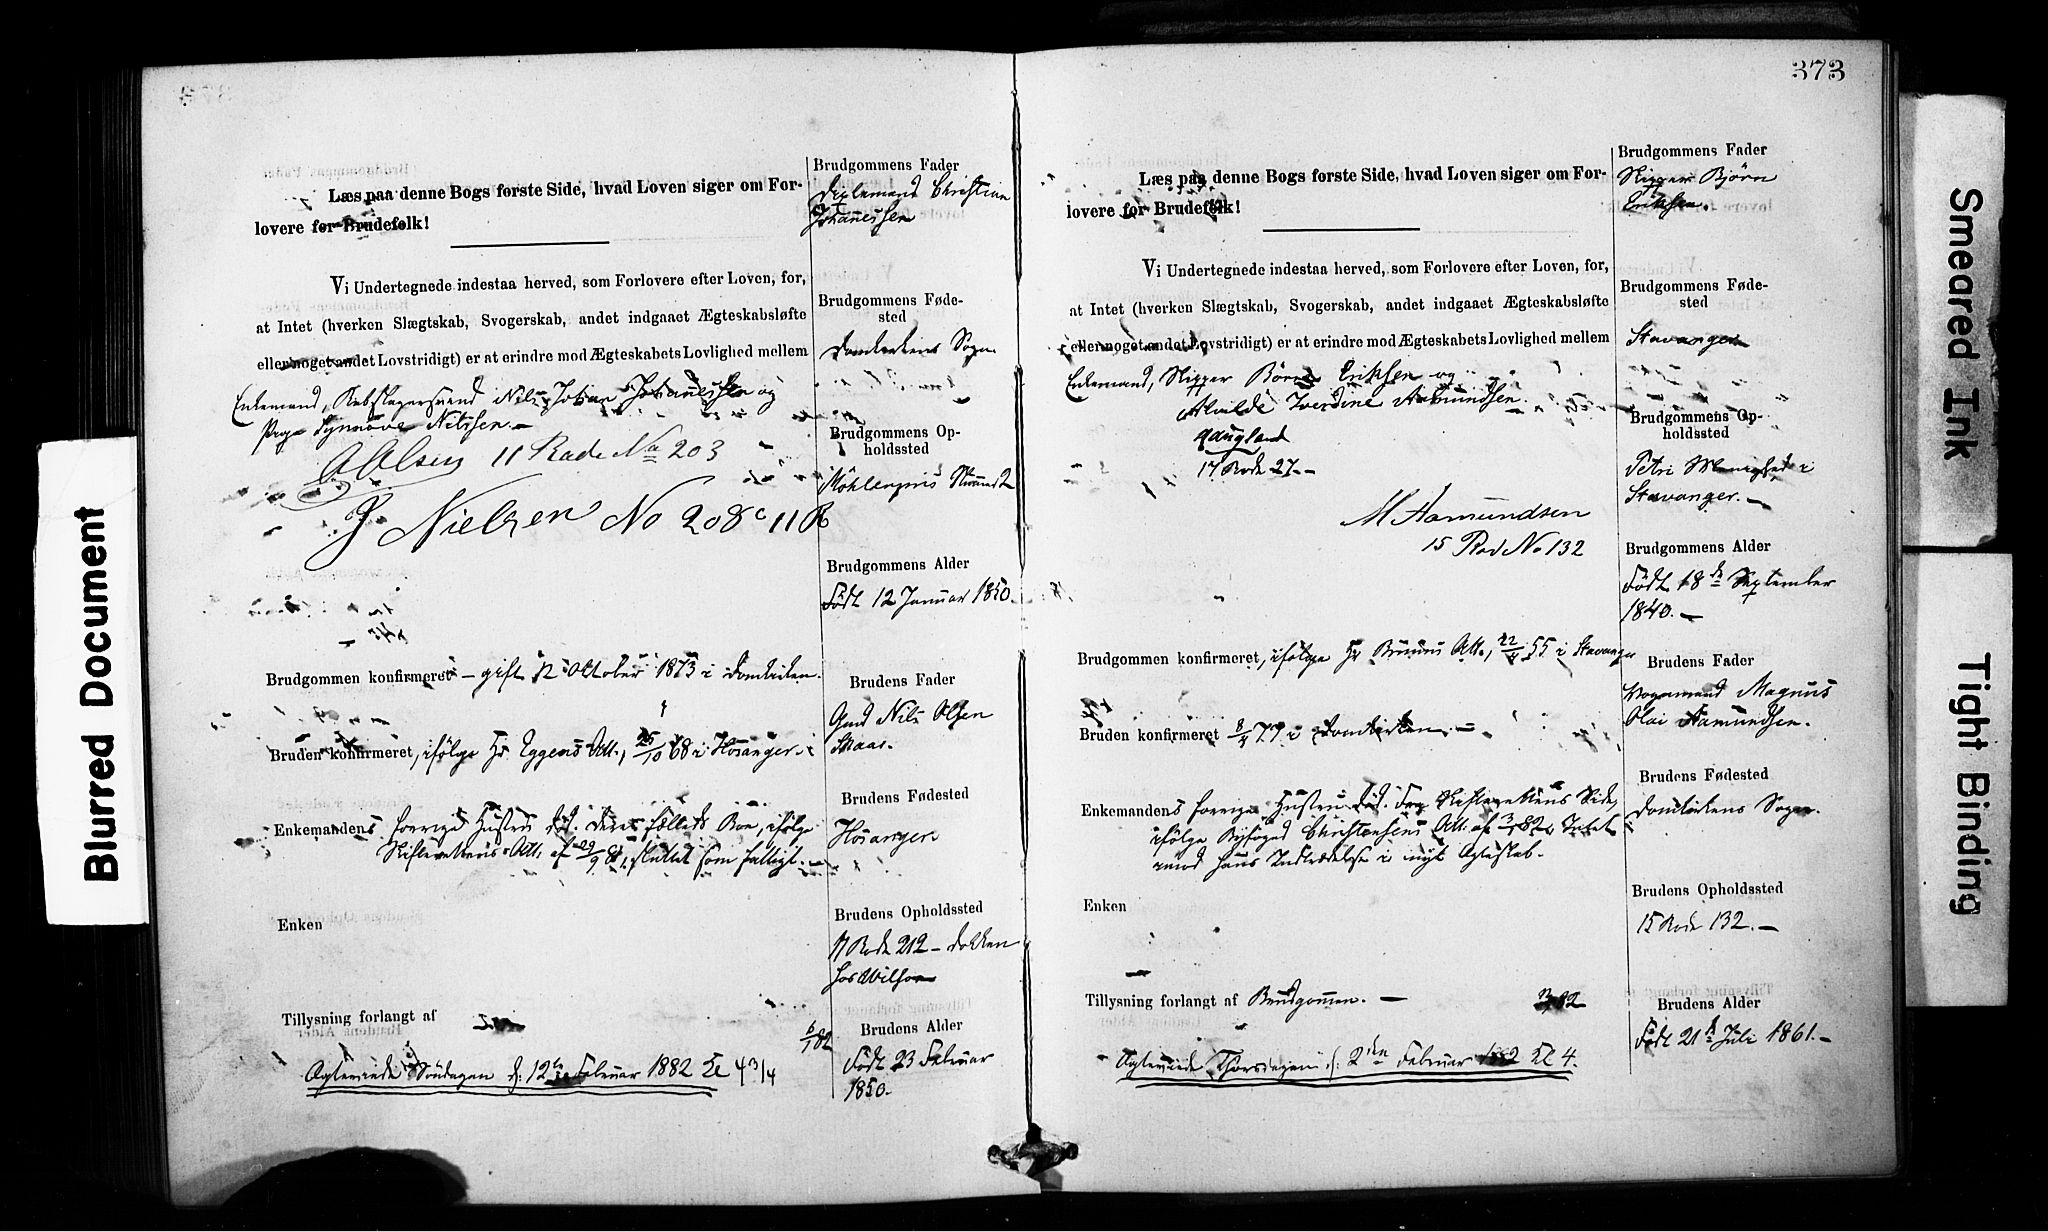 Læs paa denne Bogs første Side, hvad Loven siger om For-
lovere for Brudefolk!
Vi Undertegnede indestaa herved, som Forlovere efter Loven, for,
at Intet (hverken Slægtskab, Svogerskab, andet indgaaet Ægteskabsløfte
eller noget andet Lovstridigt) er at erindre mod Ægteskabets Lovlighed mellem
Enkemand, Rebslagersvend Nils Johan Johannessen og
Pige Synnøve Nilssen.
A Olsen 11 Rode No 203
J Nielsen No 208c 11 R
Brudgommen konfirmeret – gift 12 Oktober 1873 i Domkirken.
Bruden konfirmeret, ifølge Hr Eggens Att., 25/10 68 i Hosanger.
Enkemandens forrige Hustru død. Deres fælleds Boe, ifølge
Skifterettens Att. af 29/9 81, sluttet som falligt. –
Enken
Tillysning forlangt af
6/1 82
Ægteviede Søndagen d: 12te Februar 1882 Kl 4 3/4
Brudgommens Fader
Christian
Johannessen
Brudgommens Føde-
sted
Domkirkens Sogn
Brudgommens Op-
holdssted
Möhlenpris
Brudgommens Alder
Født 12 Januar 1850.
Brudens Fader
Gmd Nils Olsen
Skaar.
Brudens Fødested
Hosanger
Brudens Opholdssted
11 Rode 212 – Dokken
hos Wilson
Brudens Alder
Født 23 Februar
1850.
373
Læs paa denne Bogs første Side, hvad Loven siger om For-
lovere for Brudefolk!
Vi Undertegnede indestaa herved, som Forlovere efter Loven, for,
at Intet (hverken Slægtskab, Svogerskab, andet indgaaet Ægteskabsløfte
eller noget andet Lovstridigt) er at erindre mod Ægteskabets Lovlighed mellem
Enkemand, Skipper Børre Eriksen og
Alvilde Iverdine Aamundsen.
Haugland
17 Rode 27. –
M Aamundsen
15 Rod No 132
Brudgommen konfirmeret, ifølge Hr Bruuns Att., 22/4 55 i Stavanger
Bruden konfirmeret 8/4 77 i Domkirken. –
Enkemandens forrige Hustru død. Fra Skifterettens Side,
ifølge Byfoged Christensens Att. af 3/1 82, Intet
imod hans Indtrædelse i nyt Ægteskab.
Enken
Tillysning forlangt af Brudgommen. –
Ægteviede Thorsdagen d: 2den Februar 1882 Kl 4.
Brudgommens Fader
Skipper Björn
Eriksen.
Brudgommens Føde-
sted
Stavanger
Brudgommens Op-
holdssted
Petri Menighed i
Stavanger. –
Brudgommens Alder
Født 18de September
1840. –
Brudens Fader
Magnus
Olai Aamundsen.
Brudens Fødested
Domkirkens Sogn.
Brudens Opholdssted
15 Rode 132. –
Brudens Alder
Født 21de Juli 1861. –
Blurred Document
Smeared Ink
Tight Binding